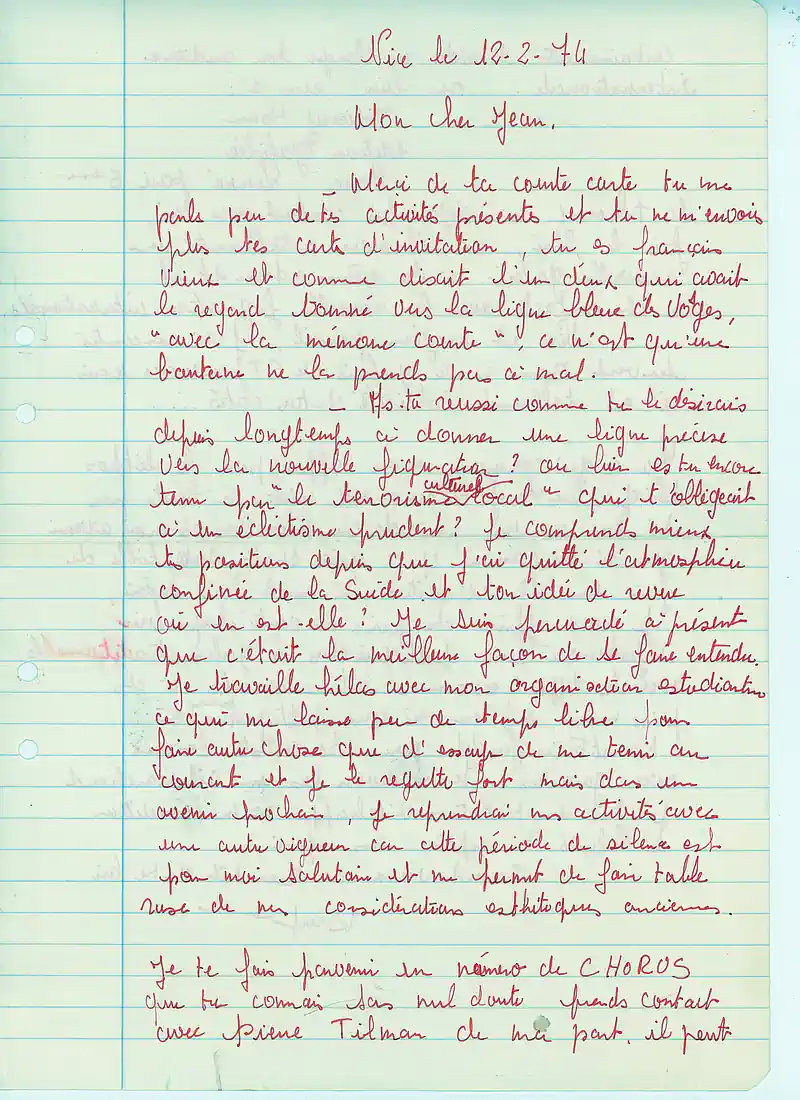 Nice le 12-2-74
Mon cher Jean.
_ Merci de ta courte carte tu me
parles peu de tes activités présentes et tu ne m'envois
plus tes carts d'invitation, tu es français
vieux et comme disait l'un deux qui avait
le regard tourné vers la ligne bleue des Vosges,
"avec la mémoire courte", ce n'est qu'une
boutarde ne la prends pas à mal.
_ As-tu reussi comme tu le désirais
depuis longtemps à donner une ligne précise
vers la nouvelle figuration ? ou bien es tu encore
tenu par "le terrorisme culturel local" qui t'obligeait
à un éclectisme prudent ? Je comprends mieux
tes positions depuis que j'ai quitté l'atmosphère
confinée de la Suède et ton idée de revue
où en est-elle ? Je suis persuadé à présent
que c'était la meilleure façon de se faire entendre.
Je travaille hélas avec mon organisation estudiantine
ce qui me laisse peu de temps libre pour
faire autre chose que d'essayer de me tenir au
courant et je le regrette fort mais dans un
avenir prochain, je reprendrai mes activités avec
une autre vigueur car cette période de silence est
pour moi salutaire et me permet de faire table
rase de mes considérations esthétiques anciennes.
Je te fais parvenir un numéro de CHORUS
que tu connais sans nul doute prends contact
avec Pierre Tilman de ma part. il peut